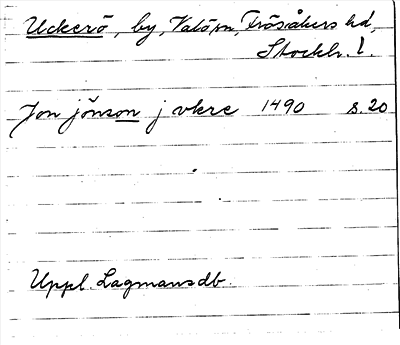 Uckerö, by, Valö sn, Frösåkers hd,
Stockh. l.
Jon jönson j vkre 1490 s. 20
Uppl. Lagmansdb.